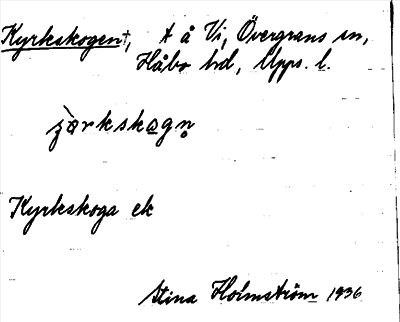 Kyrkskogen†, t å Vi, Övergrans sn,
Håbo hd, Upps. l.
jòrkskogn̥
Kyrkskoga ek
Stina Holmström 1936